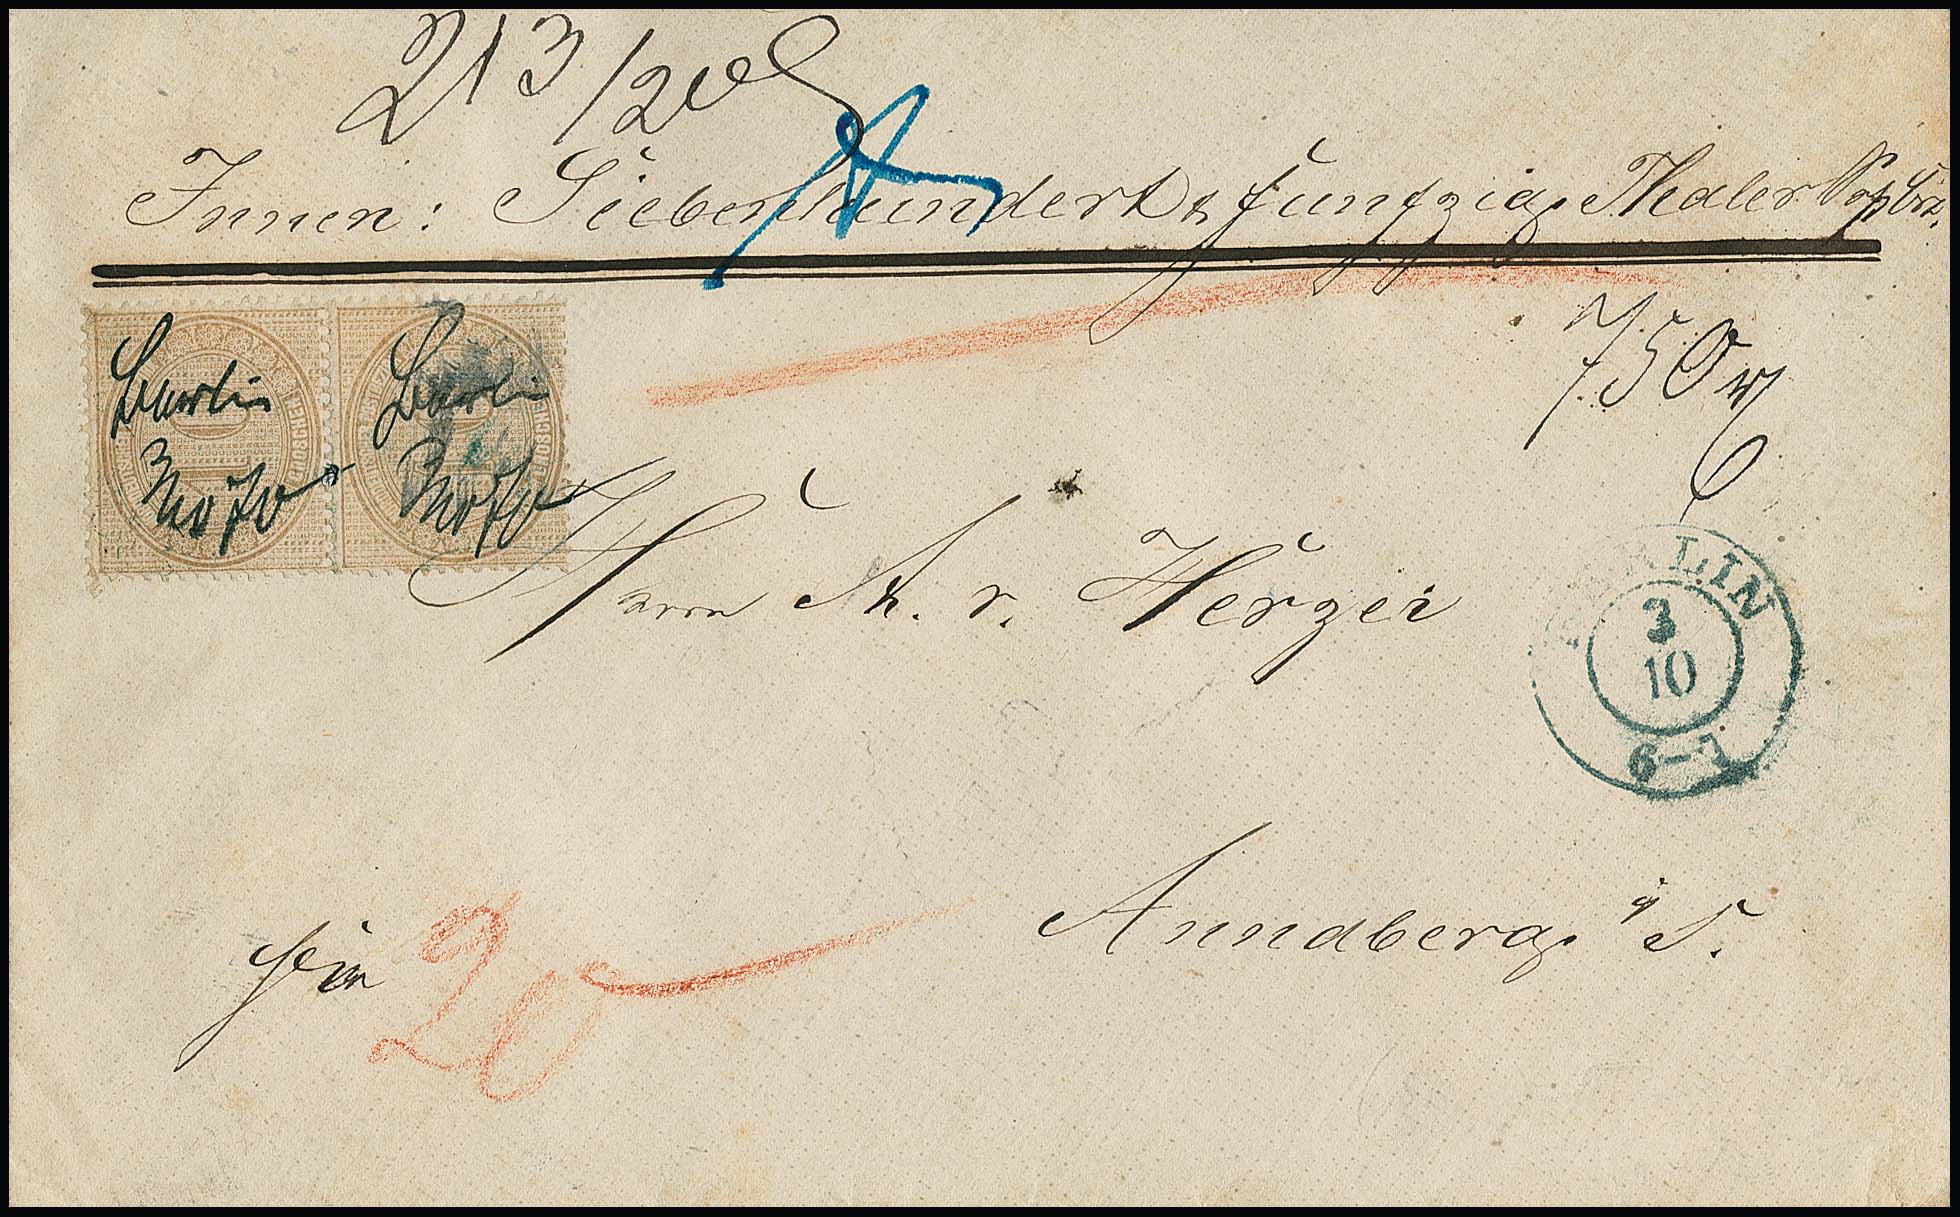 213/20
Innen: Siebenhundert & funfzig Thaler
750
Berlin
3/10 70
Berlin
3/10 70
Herrn A. v. Herzer
BERLIN
3
10
6-7
Annaberg i/S.
frei 20